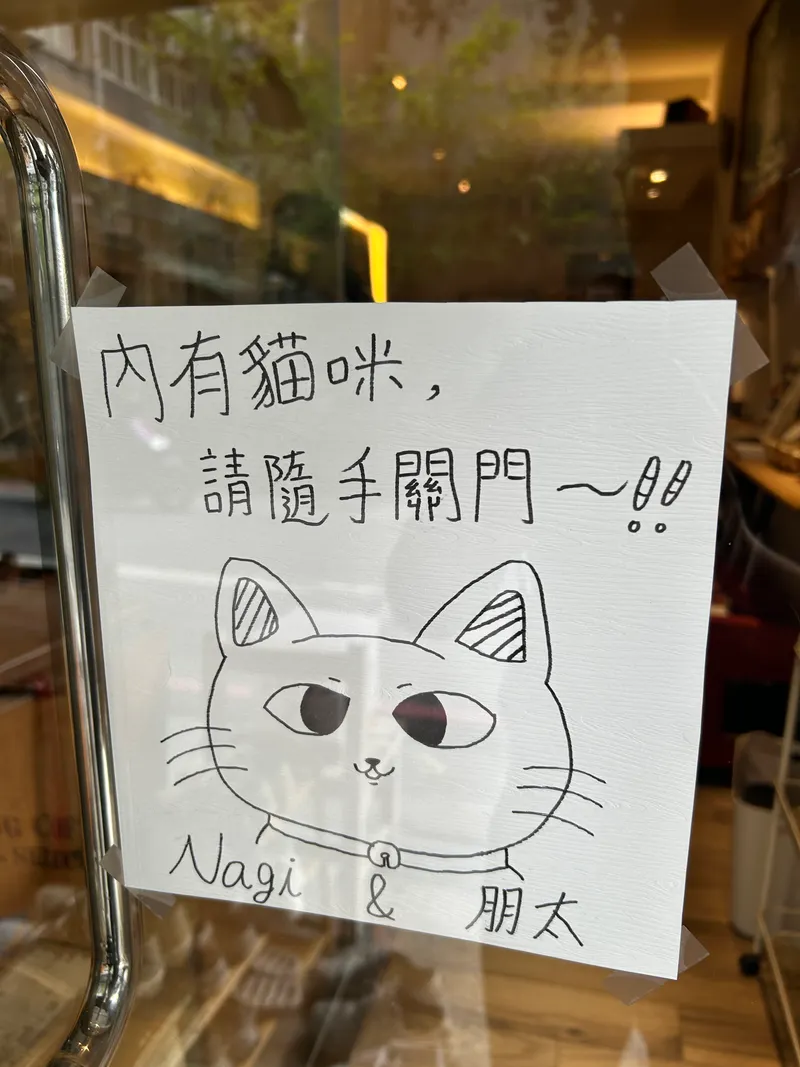 內有貓咪，
請隨手關門～!!
Nagi & 朋太